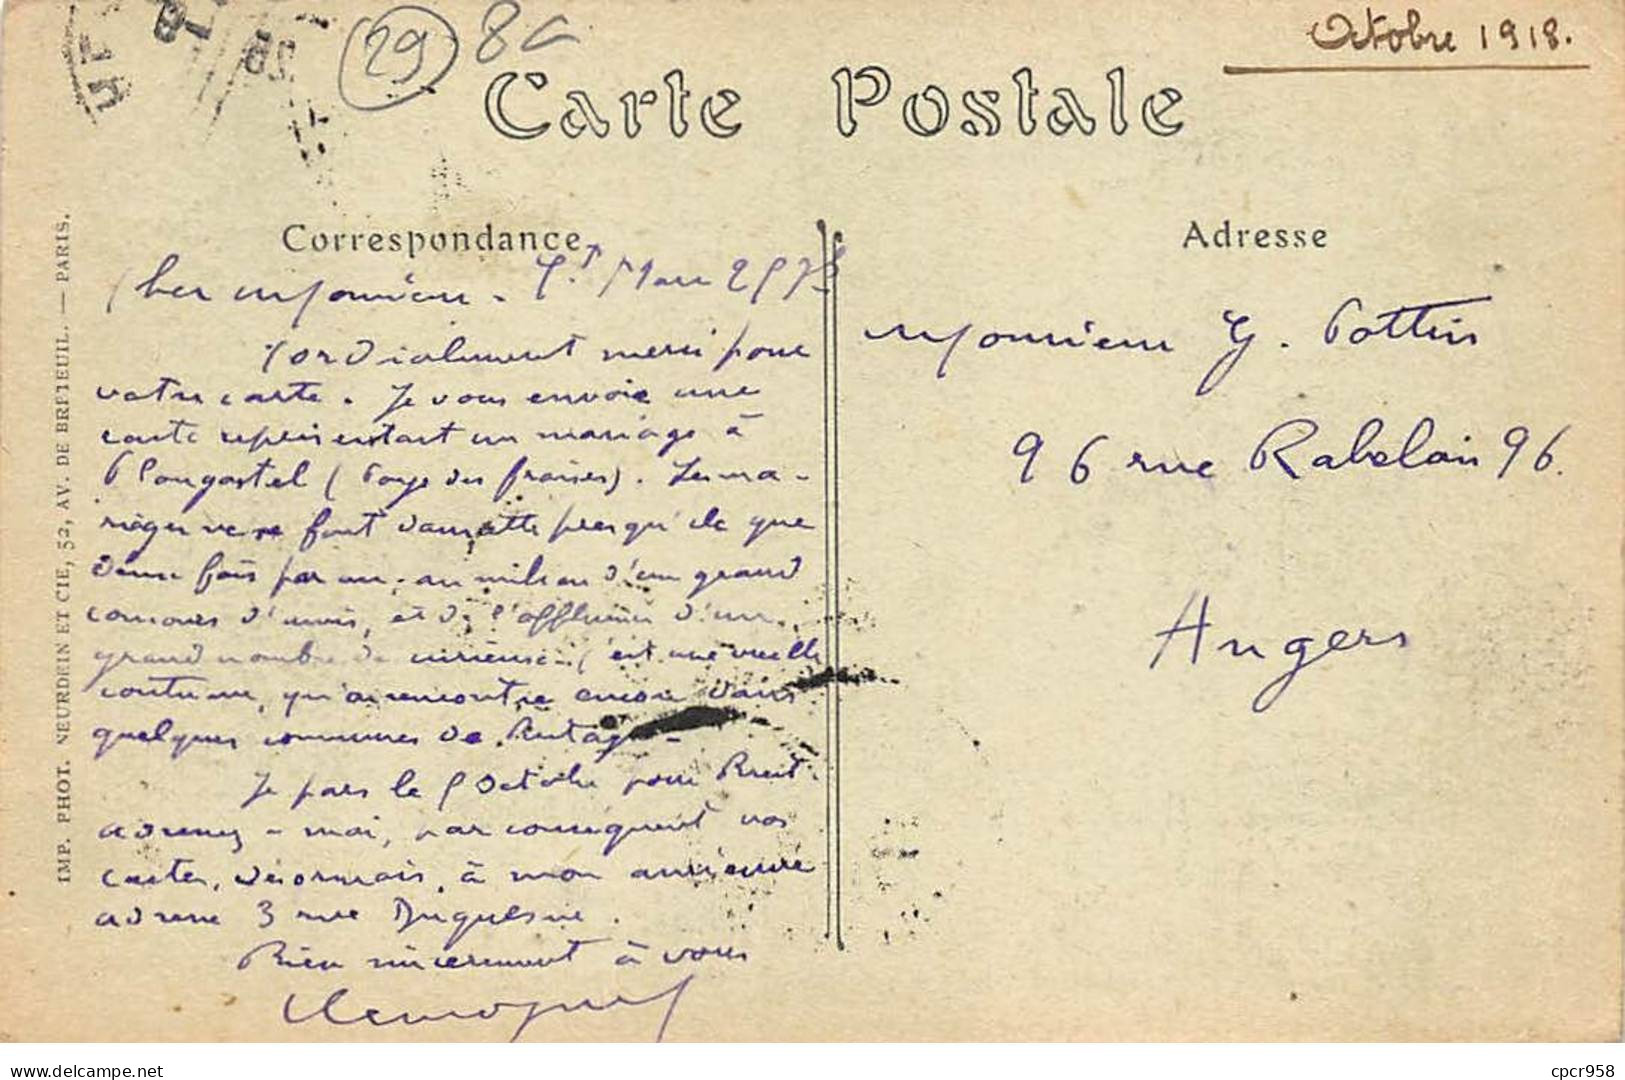 Octobre 1918.
29
Carte Postale
Correspondance
Adresse
Cher Monsieur.
Cordialement merci pour
votre carte. Je vous envoie une
carte représentant un mariage à
Plougastel (Pays des fraises). Les ma-
riages ne se font dans cette presqu'ile que
deux fois par an, au milieu d'un grand
concours d'amis, et de l'affluence d'un
grand nombre de curieux. C'est une vieille
coutume, qu'on rencontre encore dans
quelques communes de Bretagne.
Je pars le Octobre pour Brest.
adressez-moi, par conséquent vos
cartes, désormais, à mon ancienne
adresse 3 rue Duquesne.
Bien sincerement à vous
Monsieur G. Pottier
96 rue Rabelais 96.
Angers
IMP. PHOT. NEURDEIN ET CIE, 52, AV. DE BRETEUIL. — PARIS.
delcampe.net
cpcr958